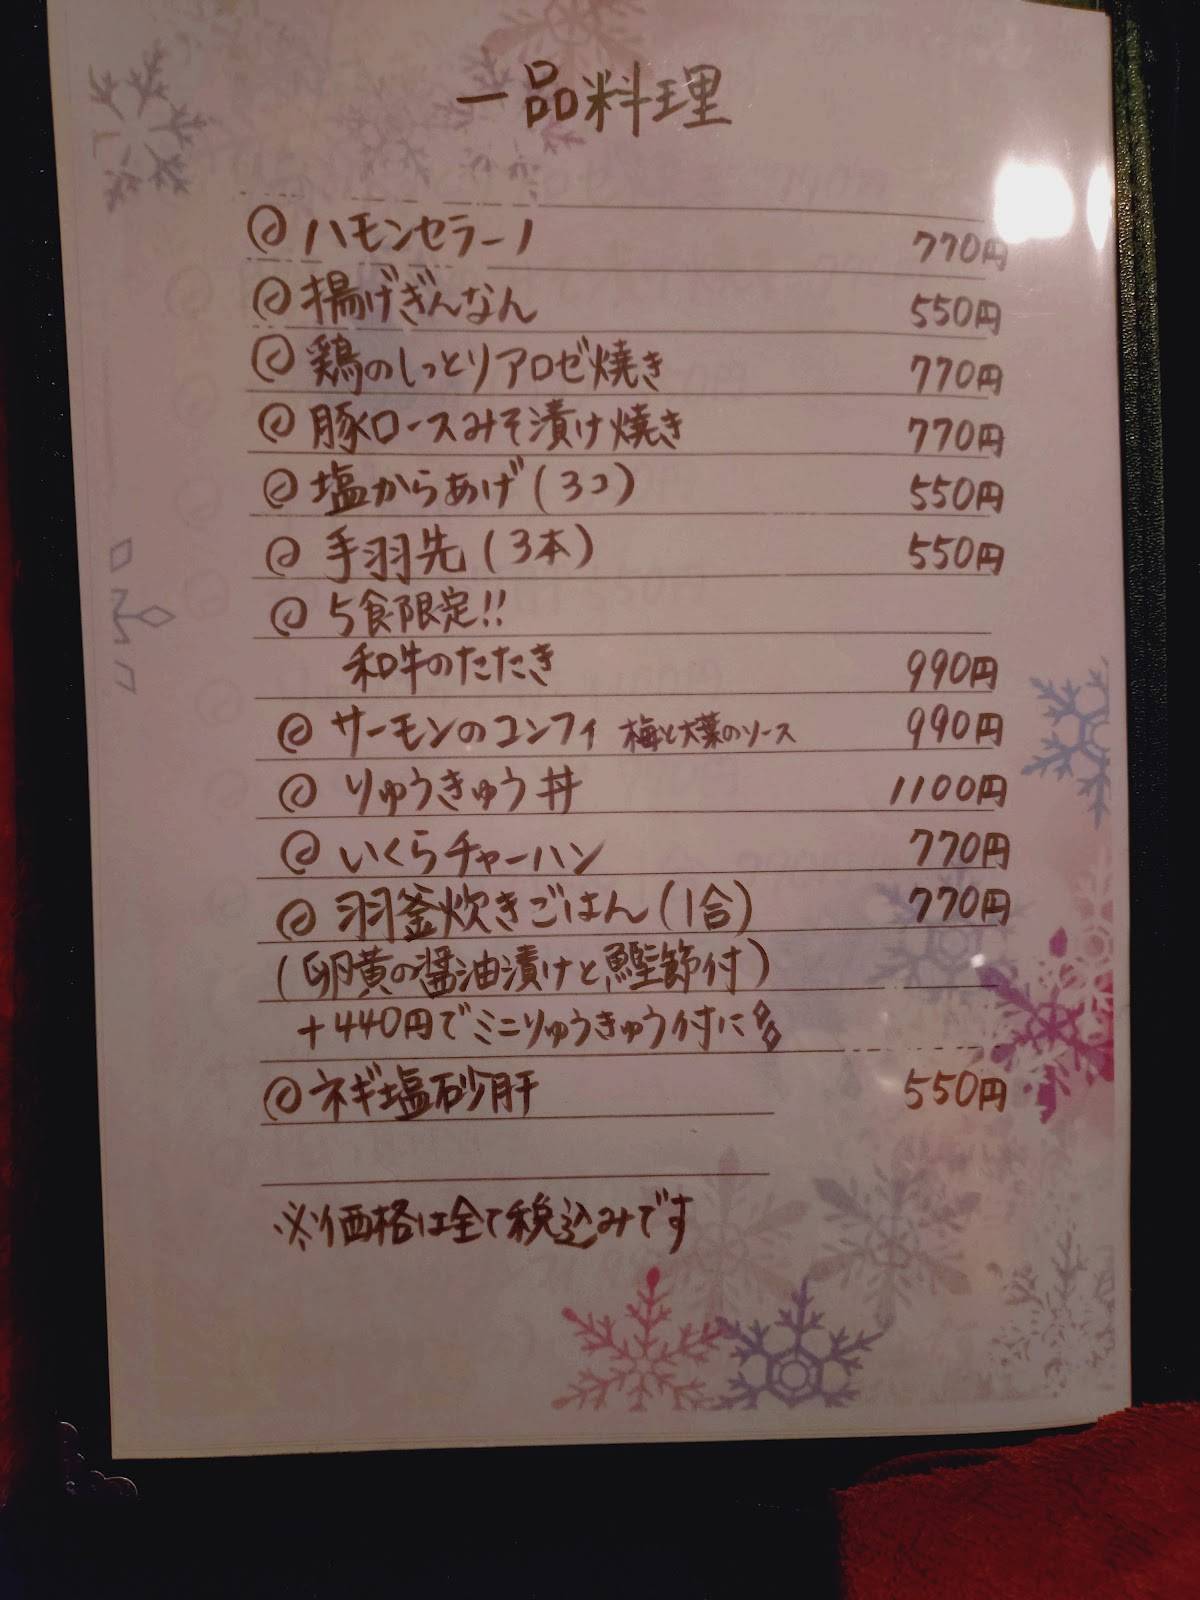 一品料理
ハモンセラーノ 770円
揚げぎんなん 550円
鶏のしっとりアロゼ焼き 770円
豚ロースみそ漬け焼き 770円
塩からあげ(3コ) 550円
手羽先(3本) 550円
5食限定!!
和牛のたたき 990円
サーモンのコンフィ 梅と大葉のソース 990円
りゅうきゅう丼 1100円
いくらチャーハン 770円
羽釜炊きごはん(1合) 770円
(卵黄の醤油漬けと鰹節付)
+440円でミニりゅうきゅう付に
ネギ塩砂肝 550円
※価格は全て税込みです